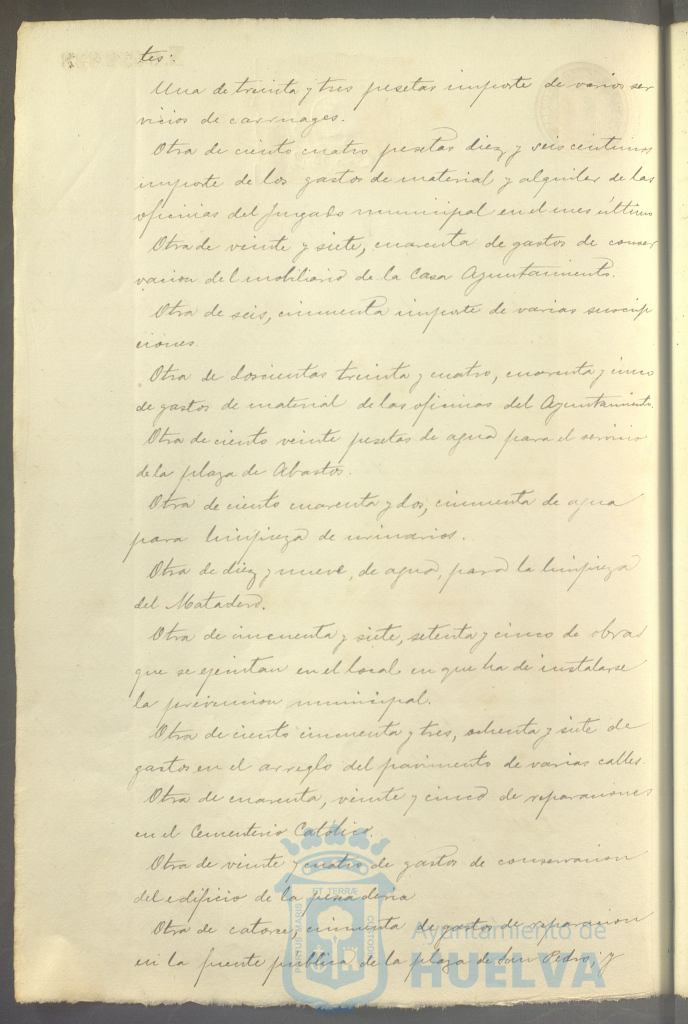 tes:
Una de treinta y tres pesetas importe de varios ser
vicios de carruages.
Otra de ciento cuatro pesetas diez y seis centimos
importe de los gastos de material y alquiler de las
oficinas del Juzgado municipal en el mes último
Otra de veinte y siete, cuarenta de gastos de conser
vacion del mobiliario de la Casa Ayuntamiento.
Otra de seis, cincuenta importe de varias suscrip
ciones.
Otra de doscientas treinta y cuatro, cuarenta y cinco
de gastos de material de las oficinas del Ayuntamiento.
Otra de ciento veinte pesetas de agua para el servicio
de la plaza de Abastos.
Otra de ciento cuarenta y dos, cincuenta de agua
para limpieza de urinarios.
Otra de diez y nueve, de agua, para la limpieza
del Matadero.
Otra de cincuenta y siete, setenta y cinco de obras
que se ejecutan en el local en que ha de instalarse
la prevencion municipal.
Otra de ciento cincuenta y tres, ochenta y siete de
gastos en el arreglo del pavimento de varias calles.
Otra de cuarenta, veinte y cinco de reparaciones
en el Cementerio Católico.
Otra de veinte y cuatro de gastos de conservacion
del edificio de la pescaderia
Otra de catorce, cincuenta de gastos de reparacion
en la fuente publica de la plaza de San Pedro; y
PORTUS MARIS ET TERRÆ CUSTODIA
Ayuntamiento de
HUELVA